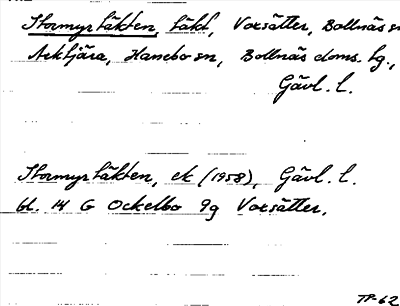 Stormyrtäkten, täkt, Voxsätter, Bollnäs sn
Arktjära, Hanebo sn, Bollnäs doms. tg.,
Gävl. l.
Stormyrtäkten, ek (1958), Gävl. l.
bl. 14 G Ockelbo 9g Voxsätter.
TP-62